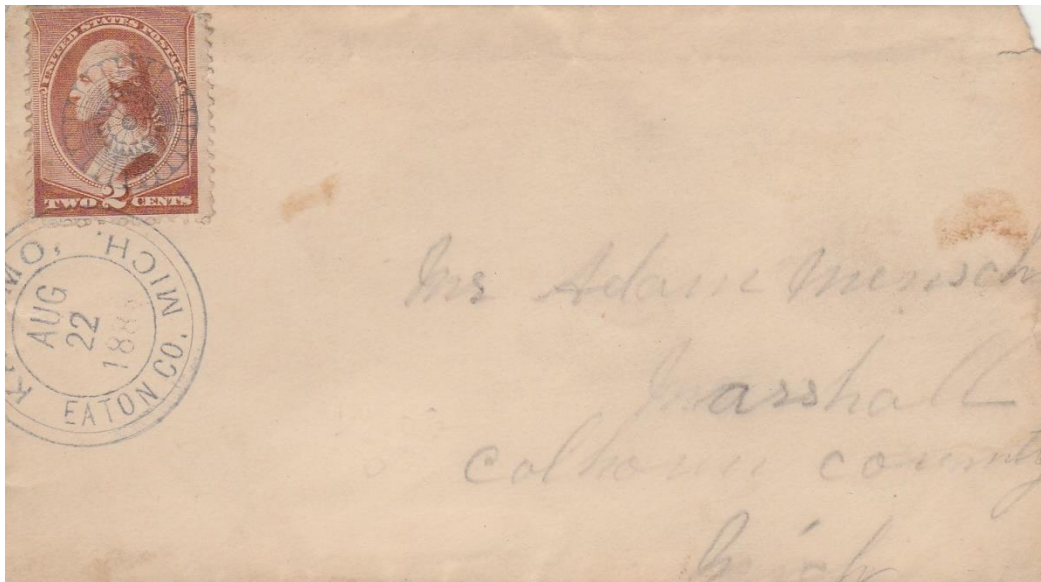 UNITED STATES POSTAGE
TWO 2 CENTS
MICH.
AUG
22
EATON CO. MICH
Mr Adam Mensch
Marshall
Calhoun county
Mich